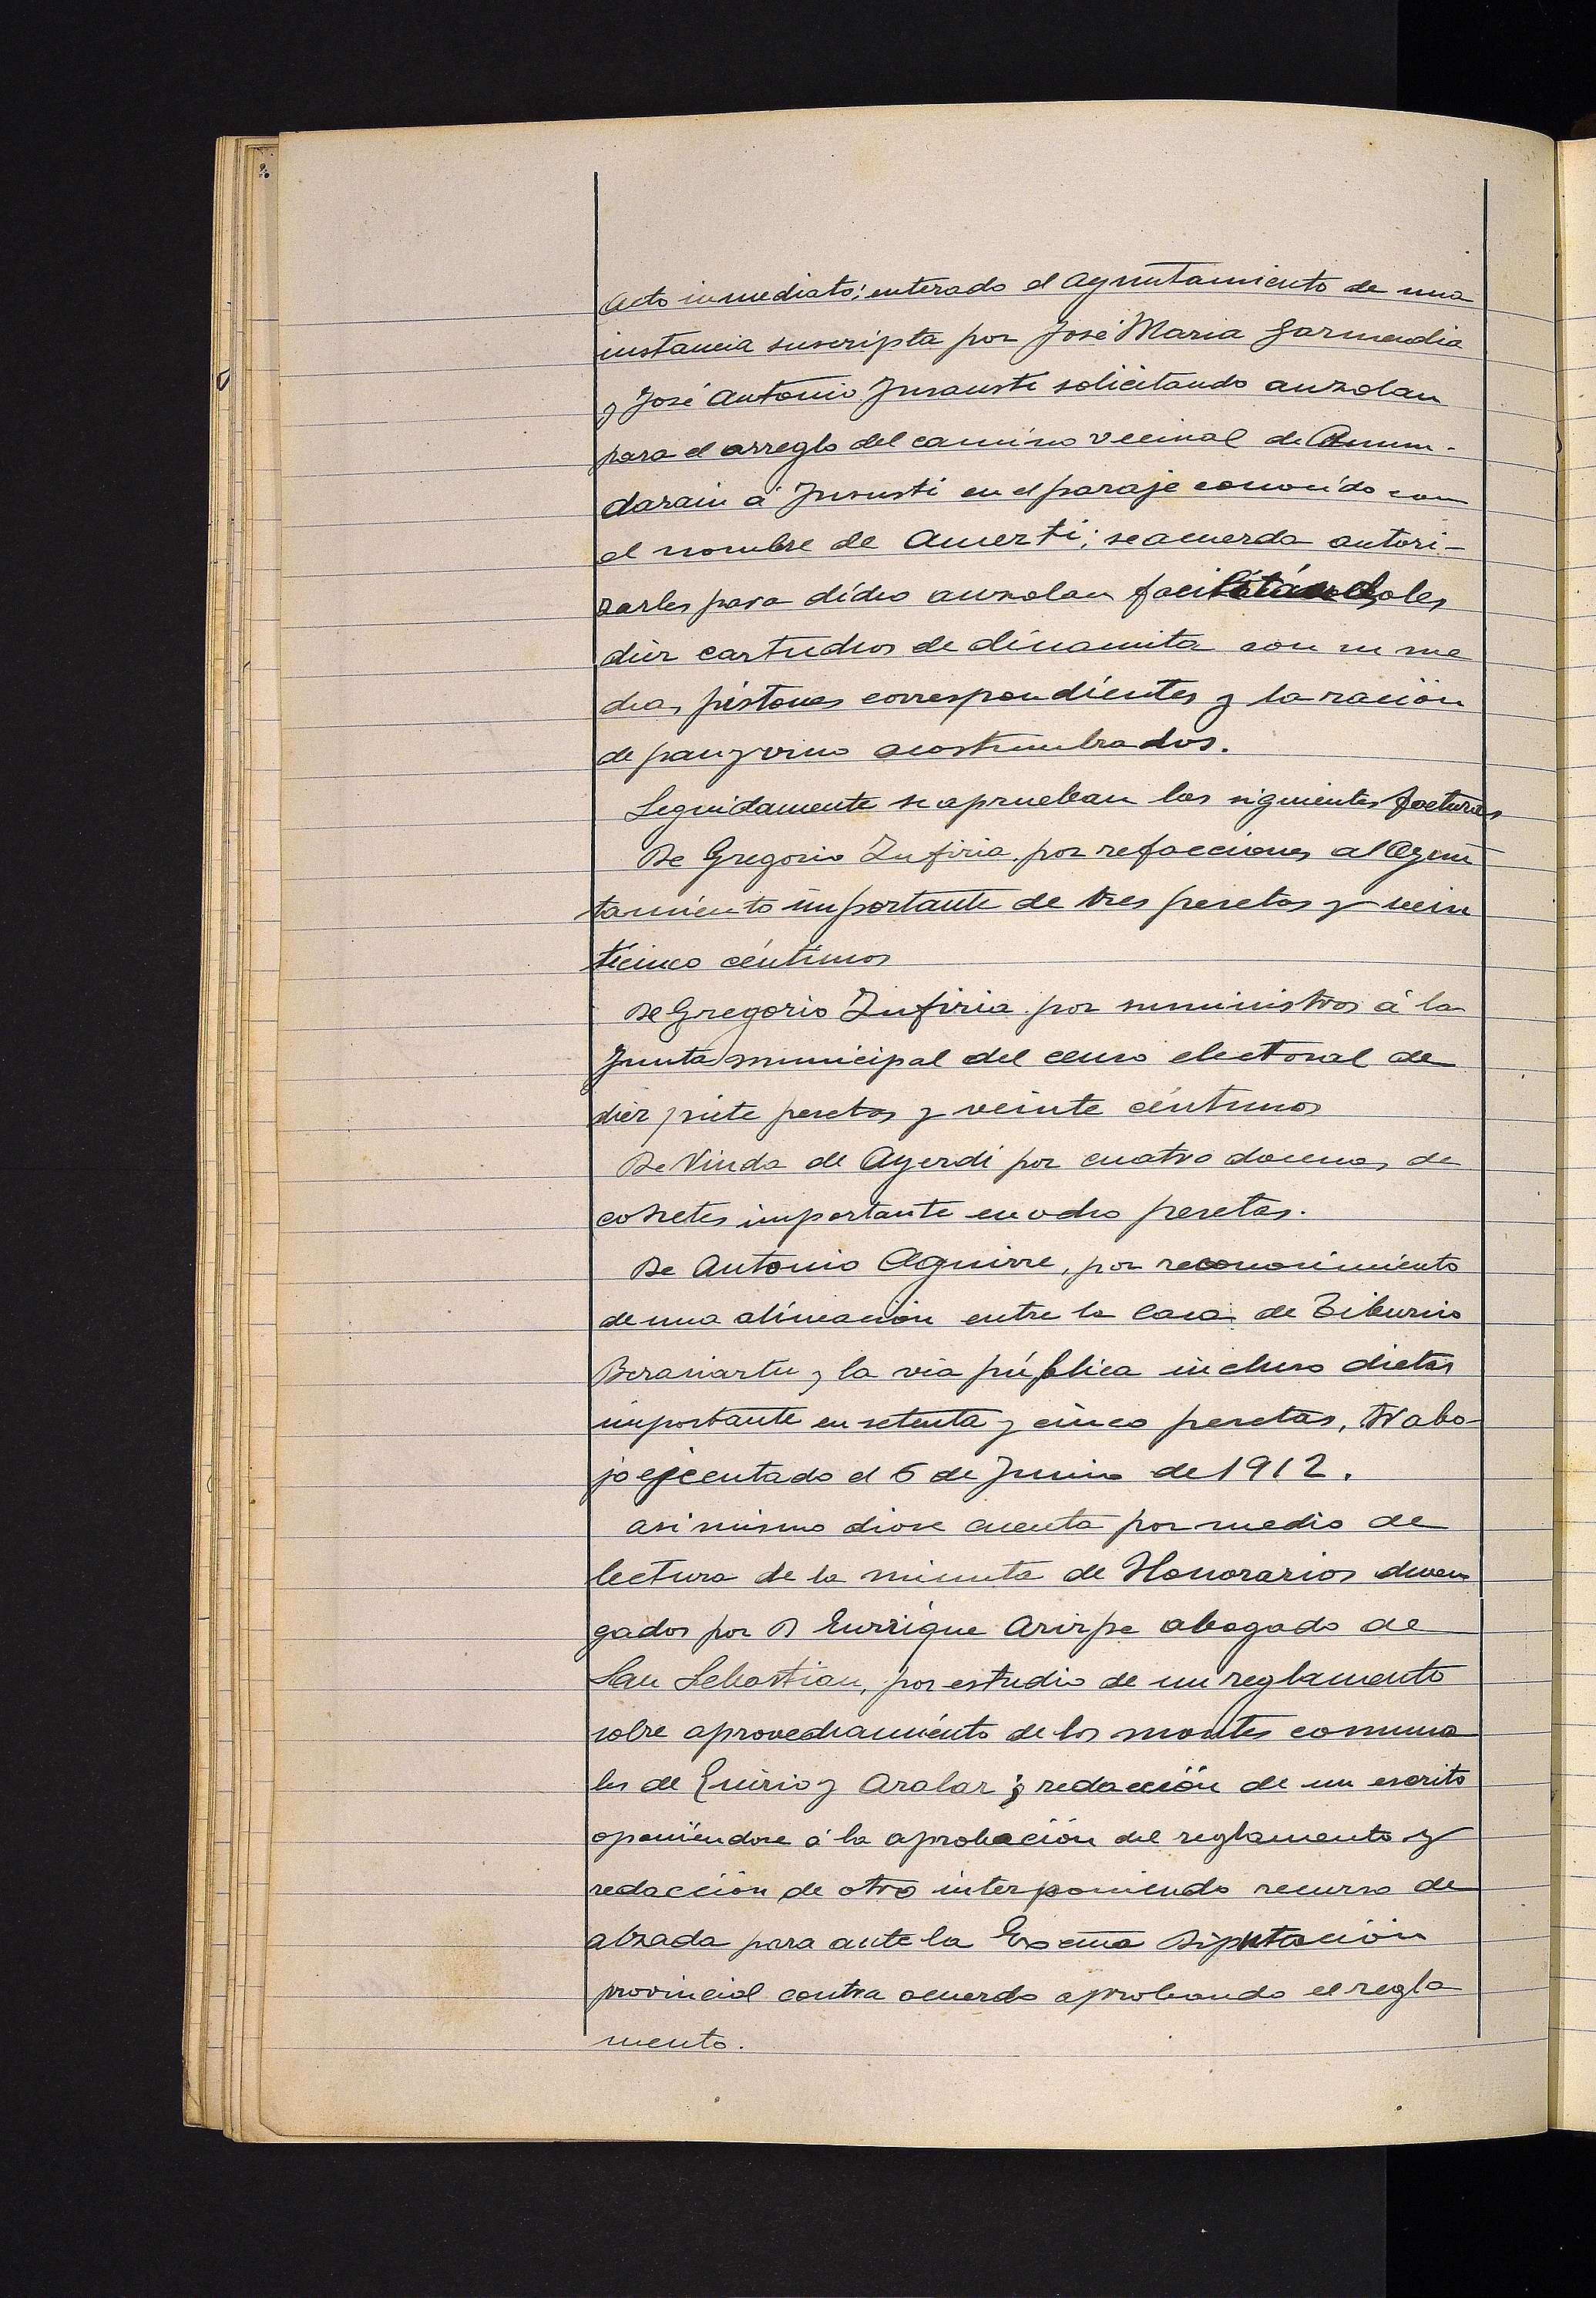 Acto inmediato; enterado el Ayuntamiento de una
instancia suscripta por José Maria Garmendia
y José Antonio Jusausti solicitando auzolan
para el arreglo del camino vecinal de Amun-
darain á Insusti en el paraje conocido con
el nombre de Amezti; se acuerda autori-
zarles para dicho auzolan facilitándoles
diez cartuchos de dinamita con su me
cha, pistones correspondientes y la ración
de pan y vino acostumbrados.
Seguidamente se aprueban las siguientes facturas
De Gregorio Zufiria por refacciones al Ayun
tamiento importante de tres pesetas y vein
ticinco céntimos
De Gregorio Zufiria por suministros á la
Junta municipal del censo electoral de
diez siete pesetas y veinte céntimos
De Viuda de Ayerdi por cuatro docenas de
cohetes importante en ocho pesetas.
De Antonio Aguirre, por reconocimiento
de una alineación entre la Casa de Tiburcio
Berasiartu y la via pública incluso dietas
importante en setenta y cinco pesetas, Traba-
jo ejecutado el 6 de Junio de 1912.
Asi mismo diose cuenta por medio de
lectura de la minuta de Honorarios deven
gados por D Enrrique Arizpe abogado de
San Sebastian, por estudio de un reglamento
sobre aprovechamiento de los montes comuna
les de Enirio y Aralar; redacción de un escrito
oponiendose á la aprobación del reglamento y
redacción de otro interponiendo recurso de
alzada para ante la Excma Diputación
provincial contra acuerdo aprobando el regla
mento.